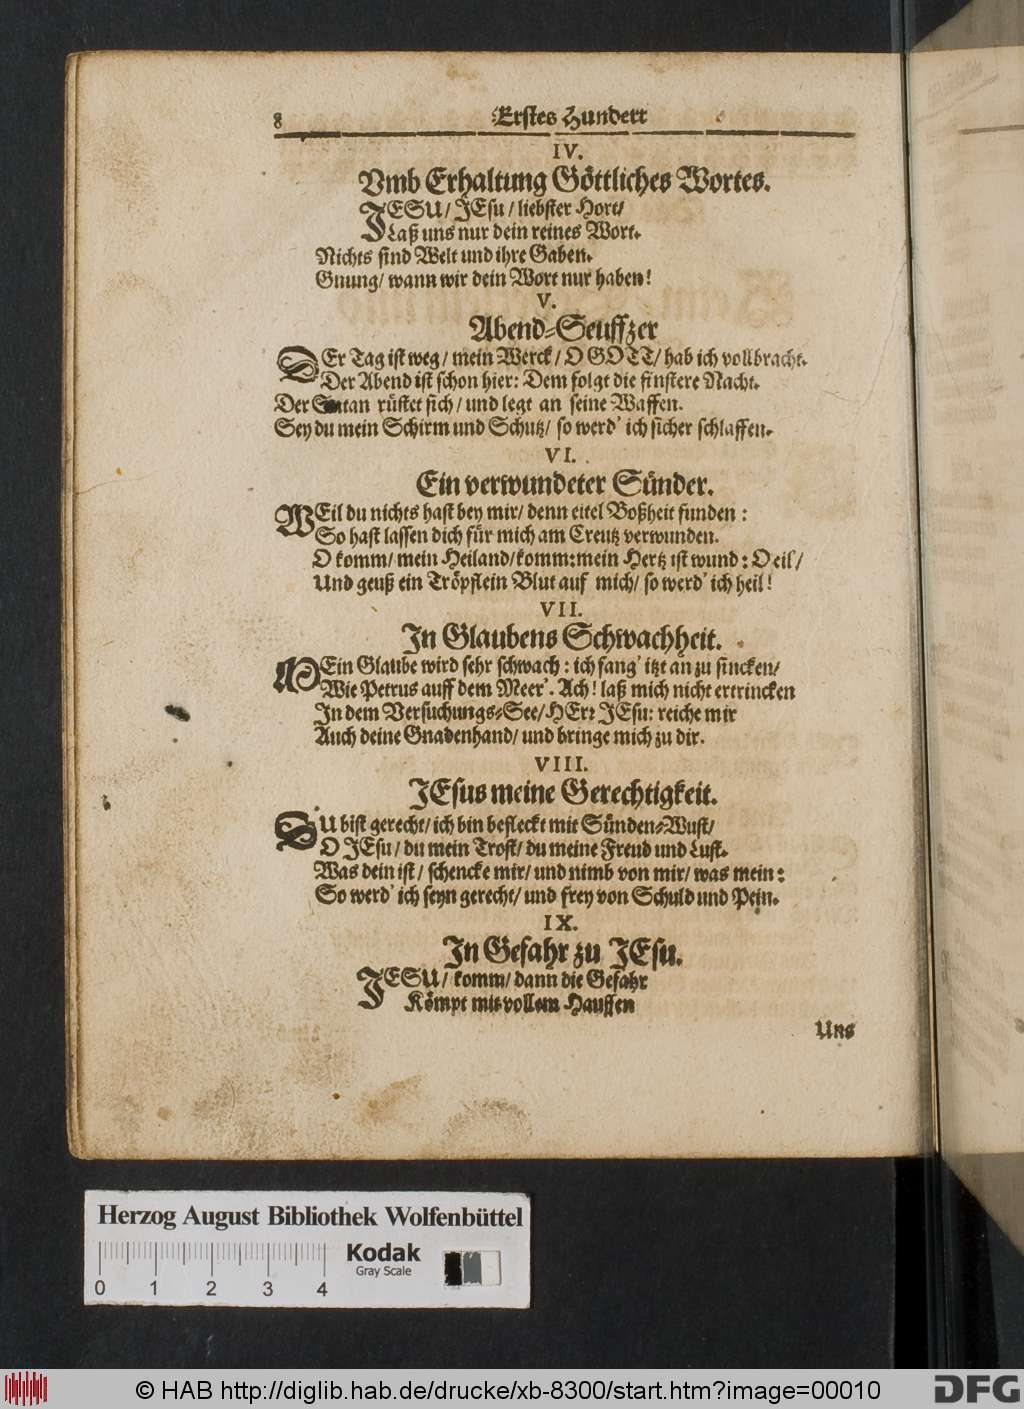 8 Erstes Hundert
IV.
Vmb Erhaltung Göttliches Wortes.
JESU/ JEsu/ liebster Hort/
Laß uns nur dein reines Wort.
Nichts sind Welt und ihre Gaben.
Gnung/ wann wir dein Wort nur haben!
V.
Abend-Seuffzer
DEr Tag ist weg/ mein Werck/ O GOTT/ hab ich vollbracht.
Der Abend ist schon hier: Dem folgt die finstere Nacht.
Der Satan rüstet sich/ und legt an seine Waffen.
Sey du mein Schirm und Schutz/ so werd' ich sicher schlaffen.
VI.
Ein verwundeter Sünder.
WEil du nichts hast bey mir/ denn eitel Boßheit funden:
So hast lassen dich für mich am Creutz verwunden.
O komm/ mein Heiland/komm:mein Hertz ist wund: O eil/
Und geuß ein Tröpflein Blut auf mich/ so werd' ich heil!
VII.
In Glaubens Schwachheit.
MEin Glaube wird sehr schwach: ich fang' itzt an zu sincken/
Wie Petrus auff dem Meer'. Ach! laß mich nicht ertrincken
In dem Versuchungs-See/ HErr JEsu: reiche mir
Auch deine Gnadenhand/ und bringe mich zu dir.
VIII.
JEsus meine Gerechtigkeit.
DU bist gerecht/ ich bin befleckt mit Sünden-Wust/
O JEsu/ du mein Trost/ du meine Freud und Lust.
Was dein ist/ schencke mir/ und nimb von mir/ was mein:
So werd' ich seyn gerecht/ und frey von Schuld und Pein.
IX.
In Gefahr zu JEsu.
JESU/ komm/ dann die Gefahr
Kömpt mit vollem Hauffen
Uns
Herzog August Bibliothek Wolfenbüttel
Kodak
Gray Scale
0 1 2 3 4
© HAB http://diglib.hab.de/drucke/xb-8300/start.htm?image=00010
DFG